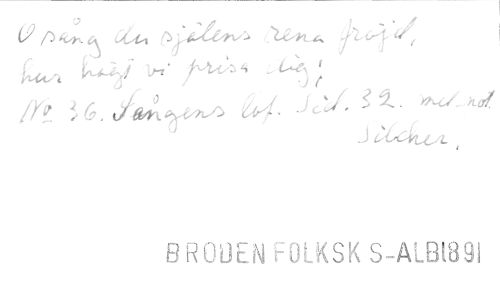 O sång du själens rena fröjd,
hur högt vi prisa dig!
No 36. Sångens lof. Sid. 32. med not.
Silcher.
BRODEN FOLKSK S-ALB1891